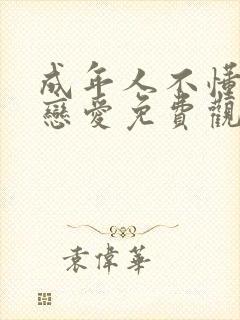 成年人不懂
戀愛免費觀
袁偉華